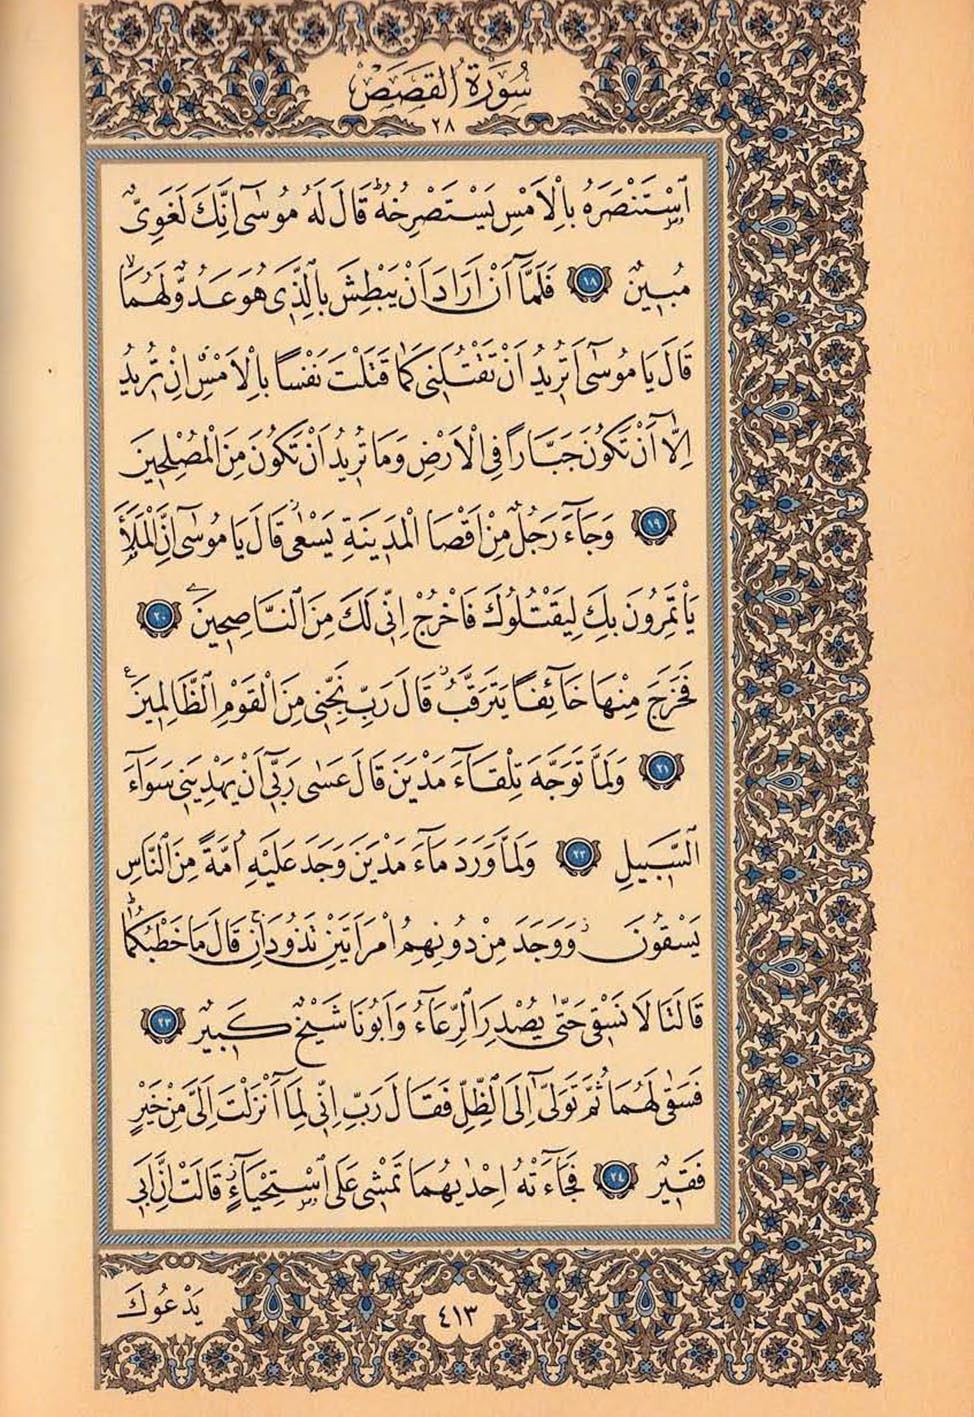 سُورَةُ الْقَصَصِ
٢٨
اَسْتَنْصَرَهُ بِالْاَمْسِ يَسْتَصْرِخُهُ قَالَ لَهُ مُوسٰٓى اِنَّكَ لَغَوِىٌّ
مُبٖينٌ ١٨ فَلَمَّٓا اَنْ اَرَادَ اَنْ يَبْطِشَ بِالَّذٖى هُوَ عَدُوٌّ لَهُمَاۙ
قَالَ يَا مُوسٰٓى اَتُرٖيدُ اَنْ تَقْتُلَنٖى كَمَا قَتَلْتَ نَفْسًا بِالْاَمْسِۗ اِنْ تُرٖيدُ
اِلَّٓا اَنْ تَكُونَ جَبَّارًا فِى الْاَرْضِ وَمَا تُرٖيدُ اَنْ تَكُونَ مِنَ الْمُصْلِحٖينَ
١٩ وَجَٓاءَ رَجُلٌ مِنْ اَقْصَا الْمَدٖينَةِ يَسْعٰىۘ قَالَ يَا مُوسٰٓى اِنَّ الْمَلَاَ
يَأْتَمِرُونَ بِكَ لِيَقْتُلُوكَ فَاخْرُجْ اِنّٖى لَكَ مِنَ النَّاصِحٖينَ ٢٠
فَخَرَجَ مِنْهَا خَٓائِفًا يَتَرَقَّبُۘ قَالَ رَبِّ نَجِّنٖى مِنَ الْقَوْمِ الظَّالِمٖينَ ع
٢١ وَلَمَّا تَوَجَّهَ تِلْقَٓاءَ مَدْيَنَ قَالَ عَسٰى رَبّٖٓى اَنْ يَهْدِيَنٖى سَوَٓاءَ
السَّبٖيلِ ٢٢ وَلَمَّا وَرَدَ مَٓاءَ مَدْيَنَ وَجَدَ عَلَيْهِ اُمَّةً مِنَ النَّاسِ
يَسْقُونَ وَوَجَدَ مِنْ دُونِهِمُ امْرَاَتَيْنِ تَذُودَانِۚ قَالَ مَا خَطْبُكُمَاۜ
قَالَتَا لَا نَسْقٖى حَتّٰى يُصْدِرَ الرِّعَٓاءُ وَاَبُونَا شَيْخٌ كَبٖيرٌ ٢٣
فَسَقٰى لَهُمَا ثُمَّ تَوَلّٰٓى اِلَى الظِّلِّ فَقَالَ رَبِّ اِنّٖى لِمَٓا اَنْزَلْتَ اِلَىَّ مِنْ خَيْرٍ
فَقٖيرٌ ٢٤ فَجَٓاءَتْهُ اِحْدٰيهُمَا تَمْشٖى عَلَى اسْتِحْيَٓاءٍۘ قَالَتْ اِنَّ اَبٖى
يَدْعُوكَ
٤١٣